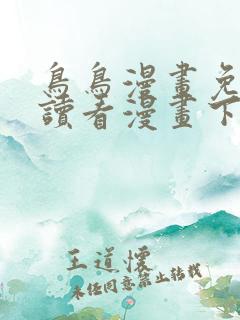 鳥鳥漫畫免
讀看漫畫下
王道懷
未经同意禁止转载